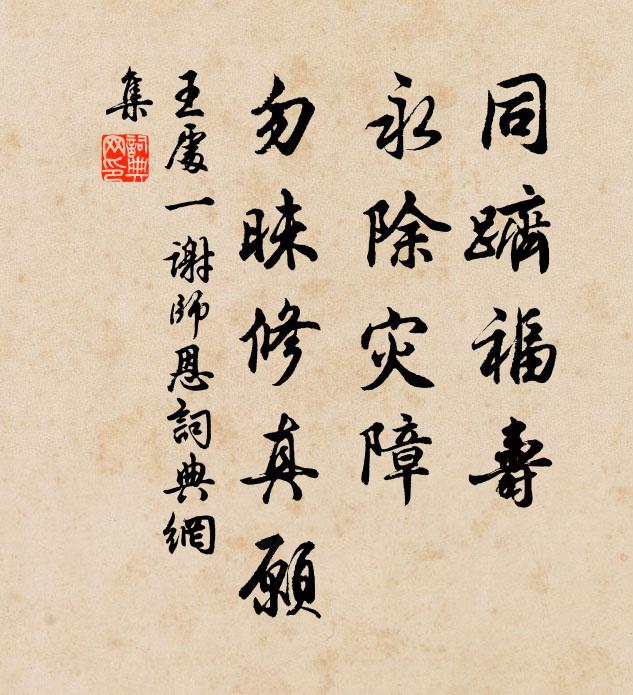 同躋福壽
永除灾障
勿昧修真願
王處一謝師恩詞典網
集
詞典
网印